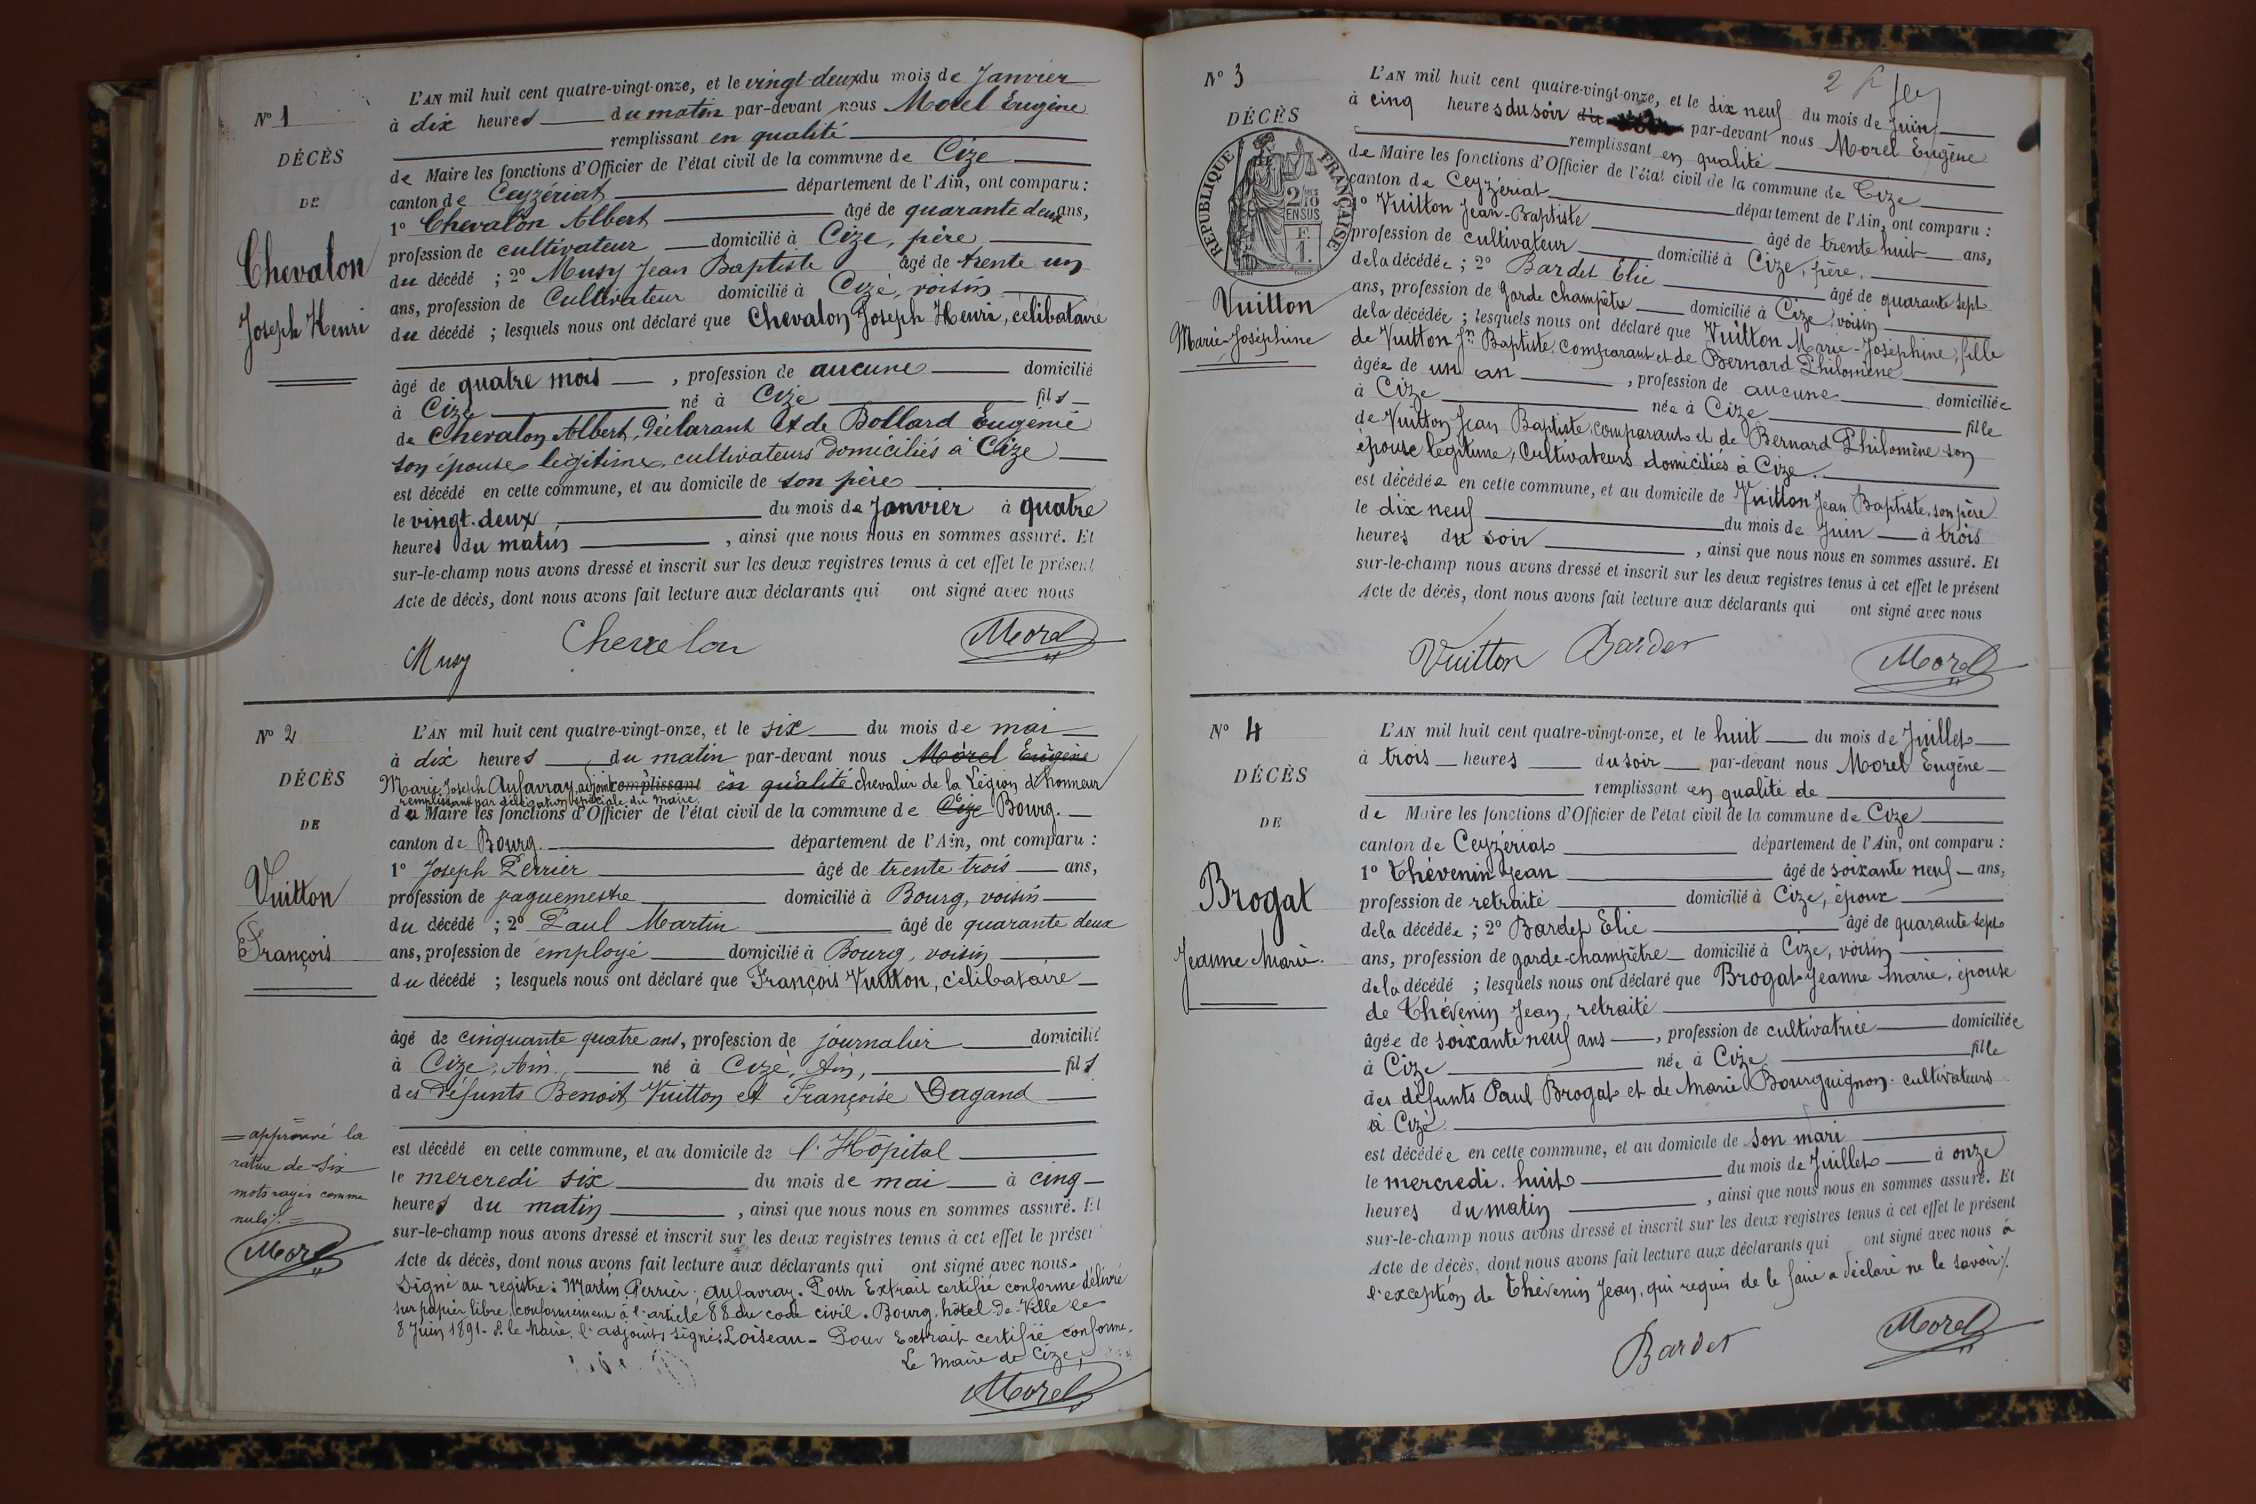 Nº 1
DÉCÈS
DE
Chevalon
Joseph Henri
L'AN mil huit cent quatre-vingt-onze, et le vingt-deux du mois de Janvier
à dix heures du matin par-devant nous Morel Eugène
remplissant en qualité
de Maire les fonctions d'Officier de l'état civil de la commune de Cize
canton de Ceyzériat département de l'Ain, ont comparu :
1º Chevalon Albert âgé de quarante deux ans,
profession de cultivateur domicilié à Cize, père
du décédé ; 2º Musy Jean Baptiste âgé de trente un
ans, profession de Cultivateur domicilié à Cize, voisin
du décédé ; lesquels nous ont déclaré que Chevalon Joseph Henri, célibataire
âgé de quatre mois , profession de aucune domicilié
à Cize né à Cize fils
de Chevalon Albert, Déclarant et de Bollard Eugénie
son épouse légitime, cultivateurs domiciliés à Cize
est décédé en cette commune, et au domicile de son père
le vingt-deux du mois de Janvier à quatre
heures du matin , ainsi que nous nous en sommes assuré. Et
sur-le-champ nous avons dressé et inscrit sur les deux registres tenus à cet effet le présent
Acte de décès, dont nous avons fait lecture aux déclarants qui ont signé avec nous
Musy Chevalon Morel
Nº 2
DÉCÈS
DE
Vuitton
François
= approuvé la
rature de six
mots rayés comme
nuls /. =
Morel
L'AN mil huit cent quatre-vingt-onze, et le six du mois de mai
à dix heures du matin par-devant nous Morel Eugène
Marie Joseph Aufavray, adjoint remplissant en qualité chevalier de la Légion d'honneur
remplissant par délégation spéciale du Maire
du Maire les fonctions d'Officier de l'état civil de la commune de Cize Bourg.
canton de Bourg. département de l'Ain, ont comparu :
1º Joseph Perrier âgé de trente trois ans,
profession de vaguemestre domicilié à Bourg, voisin
du décédé ; 2º Paul Martin âgé de quarante deux
ans, profession de employé domicilié à Bourg, voisin
du décédé ; lesquels nous ont déclaré que François Vuitton, célibataire
âgé de cinquante quatre ans, profession de journalier domicilié
à Cize, Ain, né à Cize, Ain, fils
des défunts Benoit Vuitton et Françoise Dagand
est décédé en cette commune, et au domicile de l'Hôpital
le mercredi six du mois de mai à cinq
heures du matin , ainsi que nous nous en sommes assuré. Et
sur-le-champ nous avons dressé et inscrit sur les deux registres tenus à cet effet le présent
Acte de décès, dont nous avons fait lecture aux déclarants qui ont signé avec nous.
Signé au registre : Martin, Perrier, Aufavray. Pour Extrait certifié conforme délivré
sur papier libre, conformément à l'article 88 du code civil. Bourg, hôtel de Ville le
8 Juin 1891. P. le Maire, l'adjoint, signé : Loiseau - Pour Extrait certifié conforme.
Le Maire de Cize,
Morel
Nº 3
DÉCÈS
RÉPUBLIQUE FRANÇAISE
2/10 EN SUS
F. 1.
Vuitton
Marie-Joséphine
L'AN mil huit cent quatre-vingt-onze, et le dix neuf du mois de Juin
à cinq heures du soir par-devant nous Morel Eugène
remplissant en qualité
de Maire les fonctions d'Officier de l'état civil de la commune de Cize
canton de Ceyzériat département de l'Ain, ont comparu :
1º Vuitton Jean-Baptiste âgé de trente huit ans,
profession de cultivateur domicilié à Cize, père,
de la décédée ; 2º Bardet Elie âgé de quarante sept
ans, profession de Garde champêtre domicilié à Cize, voisin
de la décédée ; lesquels nous ont déclaré que Vuitton Marie-Joséphine, fille
de Vuitton Jn Baptiste, comparant et de Bernard Philomène
âgée de un an , profession de aucune domiciliée
à Cize née à Cize fille
de Vuitton Jean Baptiste, comparant et de Bernard Philomène son
épouse légitime, Cultivateurs domiciliés à Cize.
est décédée en cette commune, et au domicile de Vuitton Jean Baptiste, son père
le dix neuf du mois de Juin à trois
heures du soir , ainsi que nous nous en sommes assuré. Et
sur-le-champ nous avons dressé et inscrit sur les deux registres tenus à cet effet le présent
Acte de décès, dont nous avons fait lecture aux déclarants qui ont signé avec nous
Vuitton Bardet Morel
Nº 4
DÉCÈS
DE
Brogat
Jeanne Marie.
L'AN mil huit cent quatre-vingt-onze, et le huit du mois de Juillet
à trois heures du soir par-devant nous Morel Eugène
remplissant en qualité de
de Maire les fonctions d'Officier de l'état civil de la commune de Cize
canton de Ceyzériat département de l'Ain, ont comparu :
1º Thévenin Jean âgé de soixante neuf ans,
profession de retraité domicilié à Cize, époux
de la décédée ; 2º Bardet Elie âgé de quarante sept
ans, profession de garde-champêtre domicilié à Cize, voisin
de la décédé ; lesquels nous ont déclaré que Brogat Jeanne Marie, épouse
de Thévenin Jean, retraité
âgée de soixante neuf ans , profession de cultivatrice domiciliée
à Cize née à Cize fille
des défunts Paul Brogat et de Marie Bourguignon. cultivateurs
à Cize.
est décédée en cette commune, et au domicile de son mari
le mercredi huit du mois de Juillet à onze
heures du matin , ainsi que nous nous en sommes assuré. Et
sur-le-champ nous avons dressé et inscrit sur les deux registres tenus à cet effet le présent
Acte de décès, dont nous avons fait lecture aux déclarants qui ont signé avec nous à
l'exception de Thévenin Jean, qui requis de le faire a déclaré ne le savoir /.
Bardet Morel